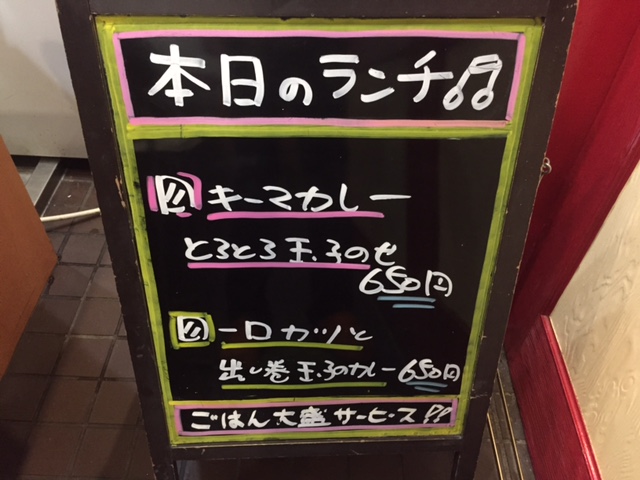 本日のランチ♫
キーマカレー
とろとろ玉子のせ
650円
一口カツと
出し巻玉子のカレー 650円
ごはん大盛サービス!!